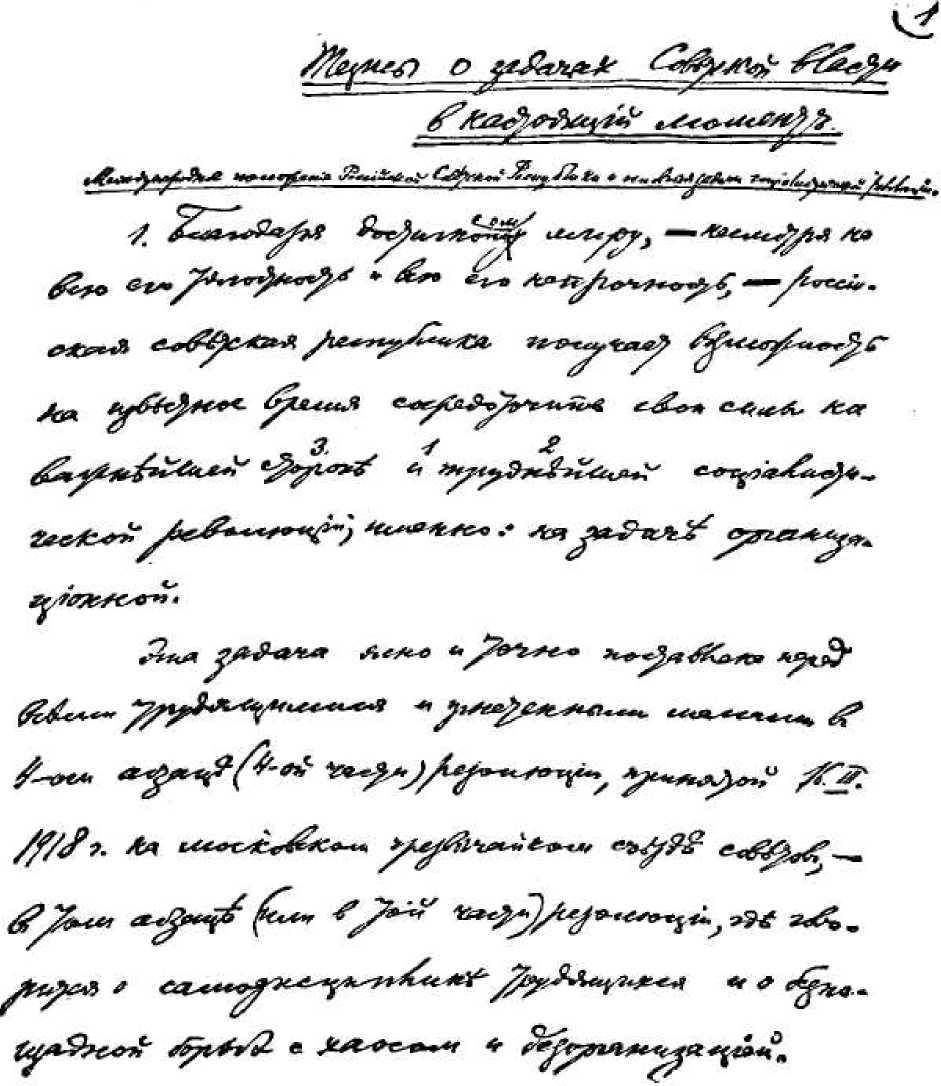 1
Тезисы о задачах Советской власти
в настоящий момент.
Международное положение Российской Советской Республики и основная задача социалистической революции.
1. Благодаря достигнутому миру, — несмотря на
всю его тягостность и всю его непрочность, — россий-
ская советская республика получает возможность
на известное время сосредоточить свои силы на
важнѣйшей 3. сторонѣ 1 и труднѣйшей 2 соцiалисти-
ческой революцiи, именно: на задачѣ организа-
цiонной.
Эта задача ясно и точно поставлена перед
всѣми трудящимися и угнетенными массами в
4-ом абзацѣ (4-ой части) резолюцiи, принятой 16. III.
1918 г. на московском чрезвычайном съѣздѣ совѣтов, —
в том абзацѣ (или в той части) резолюцiи, гдѣ гово-
рится о самодисциплинѣ трудящихся и о беспо-
щадной борьбѣ с хаосом и дезорганизацiей.